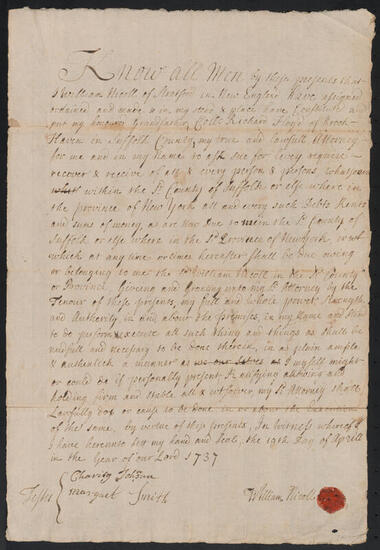 Know all Men by these presents that
I William Nicoll of Stratford in New England have assigned
ordained and made & in my stead & place have Constituted and
put my honoured Grandfather, Collo Richard Floyd of Brook
Haven in Suffolk County, my true and lawfull Attorney
for me and in my Name to ask sue for levy require
recover & receive of all & every person & persons whatsoever
within the Sd County of Suffolk or else where in
the province of New York all and every such Debts Rents
and sums of money, as are now Due to me in the Sd County of
Suffolk or else where in the Sd Province of New York, or wt
which at any time or times hereafter shall be due owing
or belonging to me the Sd William Nicoll in the Sd County
or Province. Giveing and Granting unto my Sd Attorney by the
Tenour of these presents, my full and whole power Strength
and Authority in and about the premises, in my Name
to do perform & execute all such thing and things as shall be
needfull and necessary to be done therein, in as plain ample
& authentick a manner as we our Selves as I my self might
or could do if personally present Ratifying allowing and
holding firm and stable all & wtsoever my Sd Attorney shall
Lawfully do or cause to be done in or about the Execution
of the same, by virtue of these presents, In Witness whereof
I have hereunto sett my hand and Seal, the 19th Day of Aprill
in the Year of our Lord 1737
Charity
Testes
Margret Smith
William Nicoll